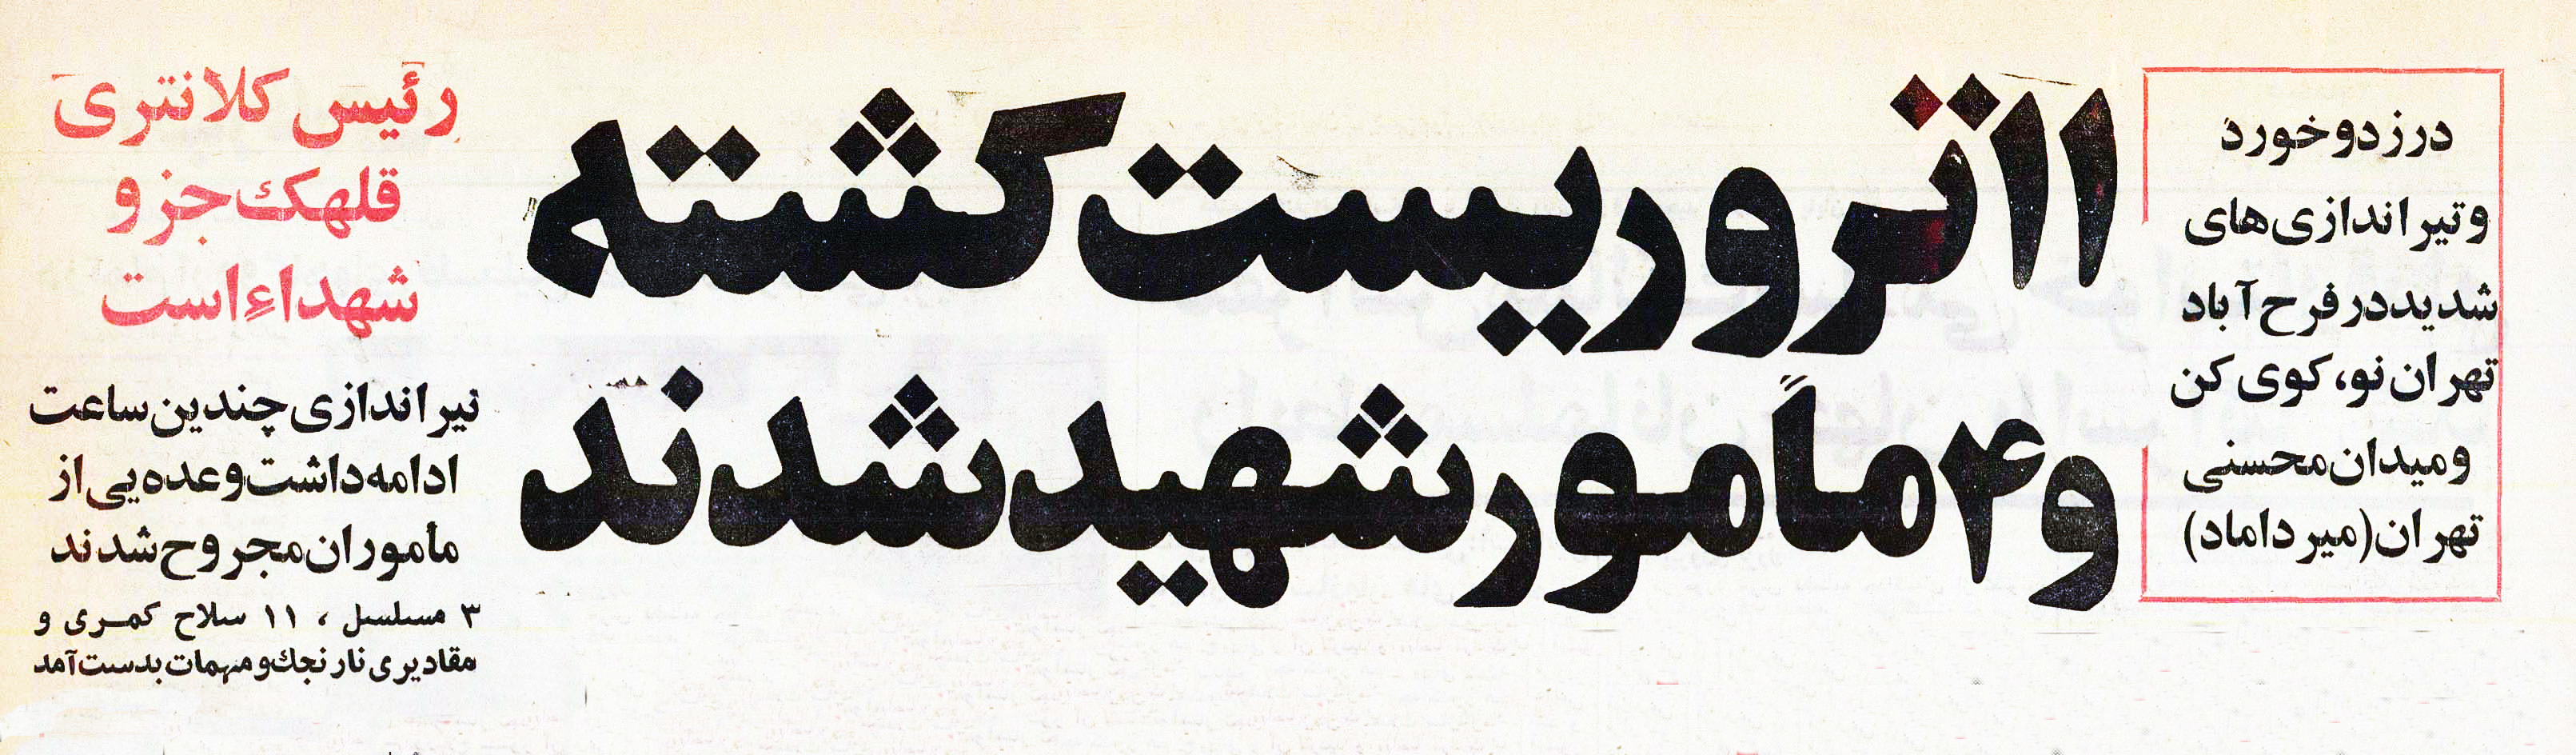 در زد و خورد
و تیر اندازی های
شدید در فرح آباد
تهران نو، کوی کن
و میدان محسنی
تهران (میر داماد)
۱۱ تروریست کشته
و ۴ مأمور شهید شدند
رئیس کلانتری
قلهک جزو
شهداء است
تیر اندازی چندین ساعت
ادامه داشت و عده یی از
مأموران مجروح شدند
۳ مسلسل ، ۱۱ سلاح کمری و
مقادیری نارنجک و مهمات بدست آمد